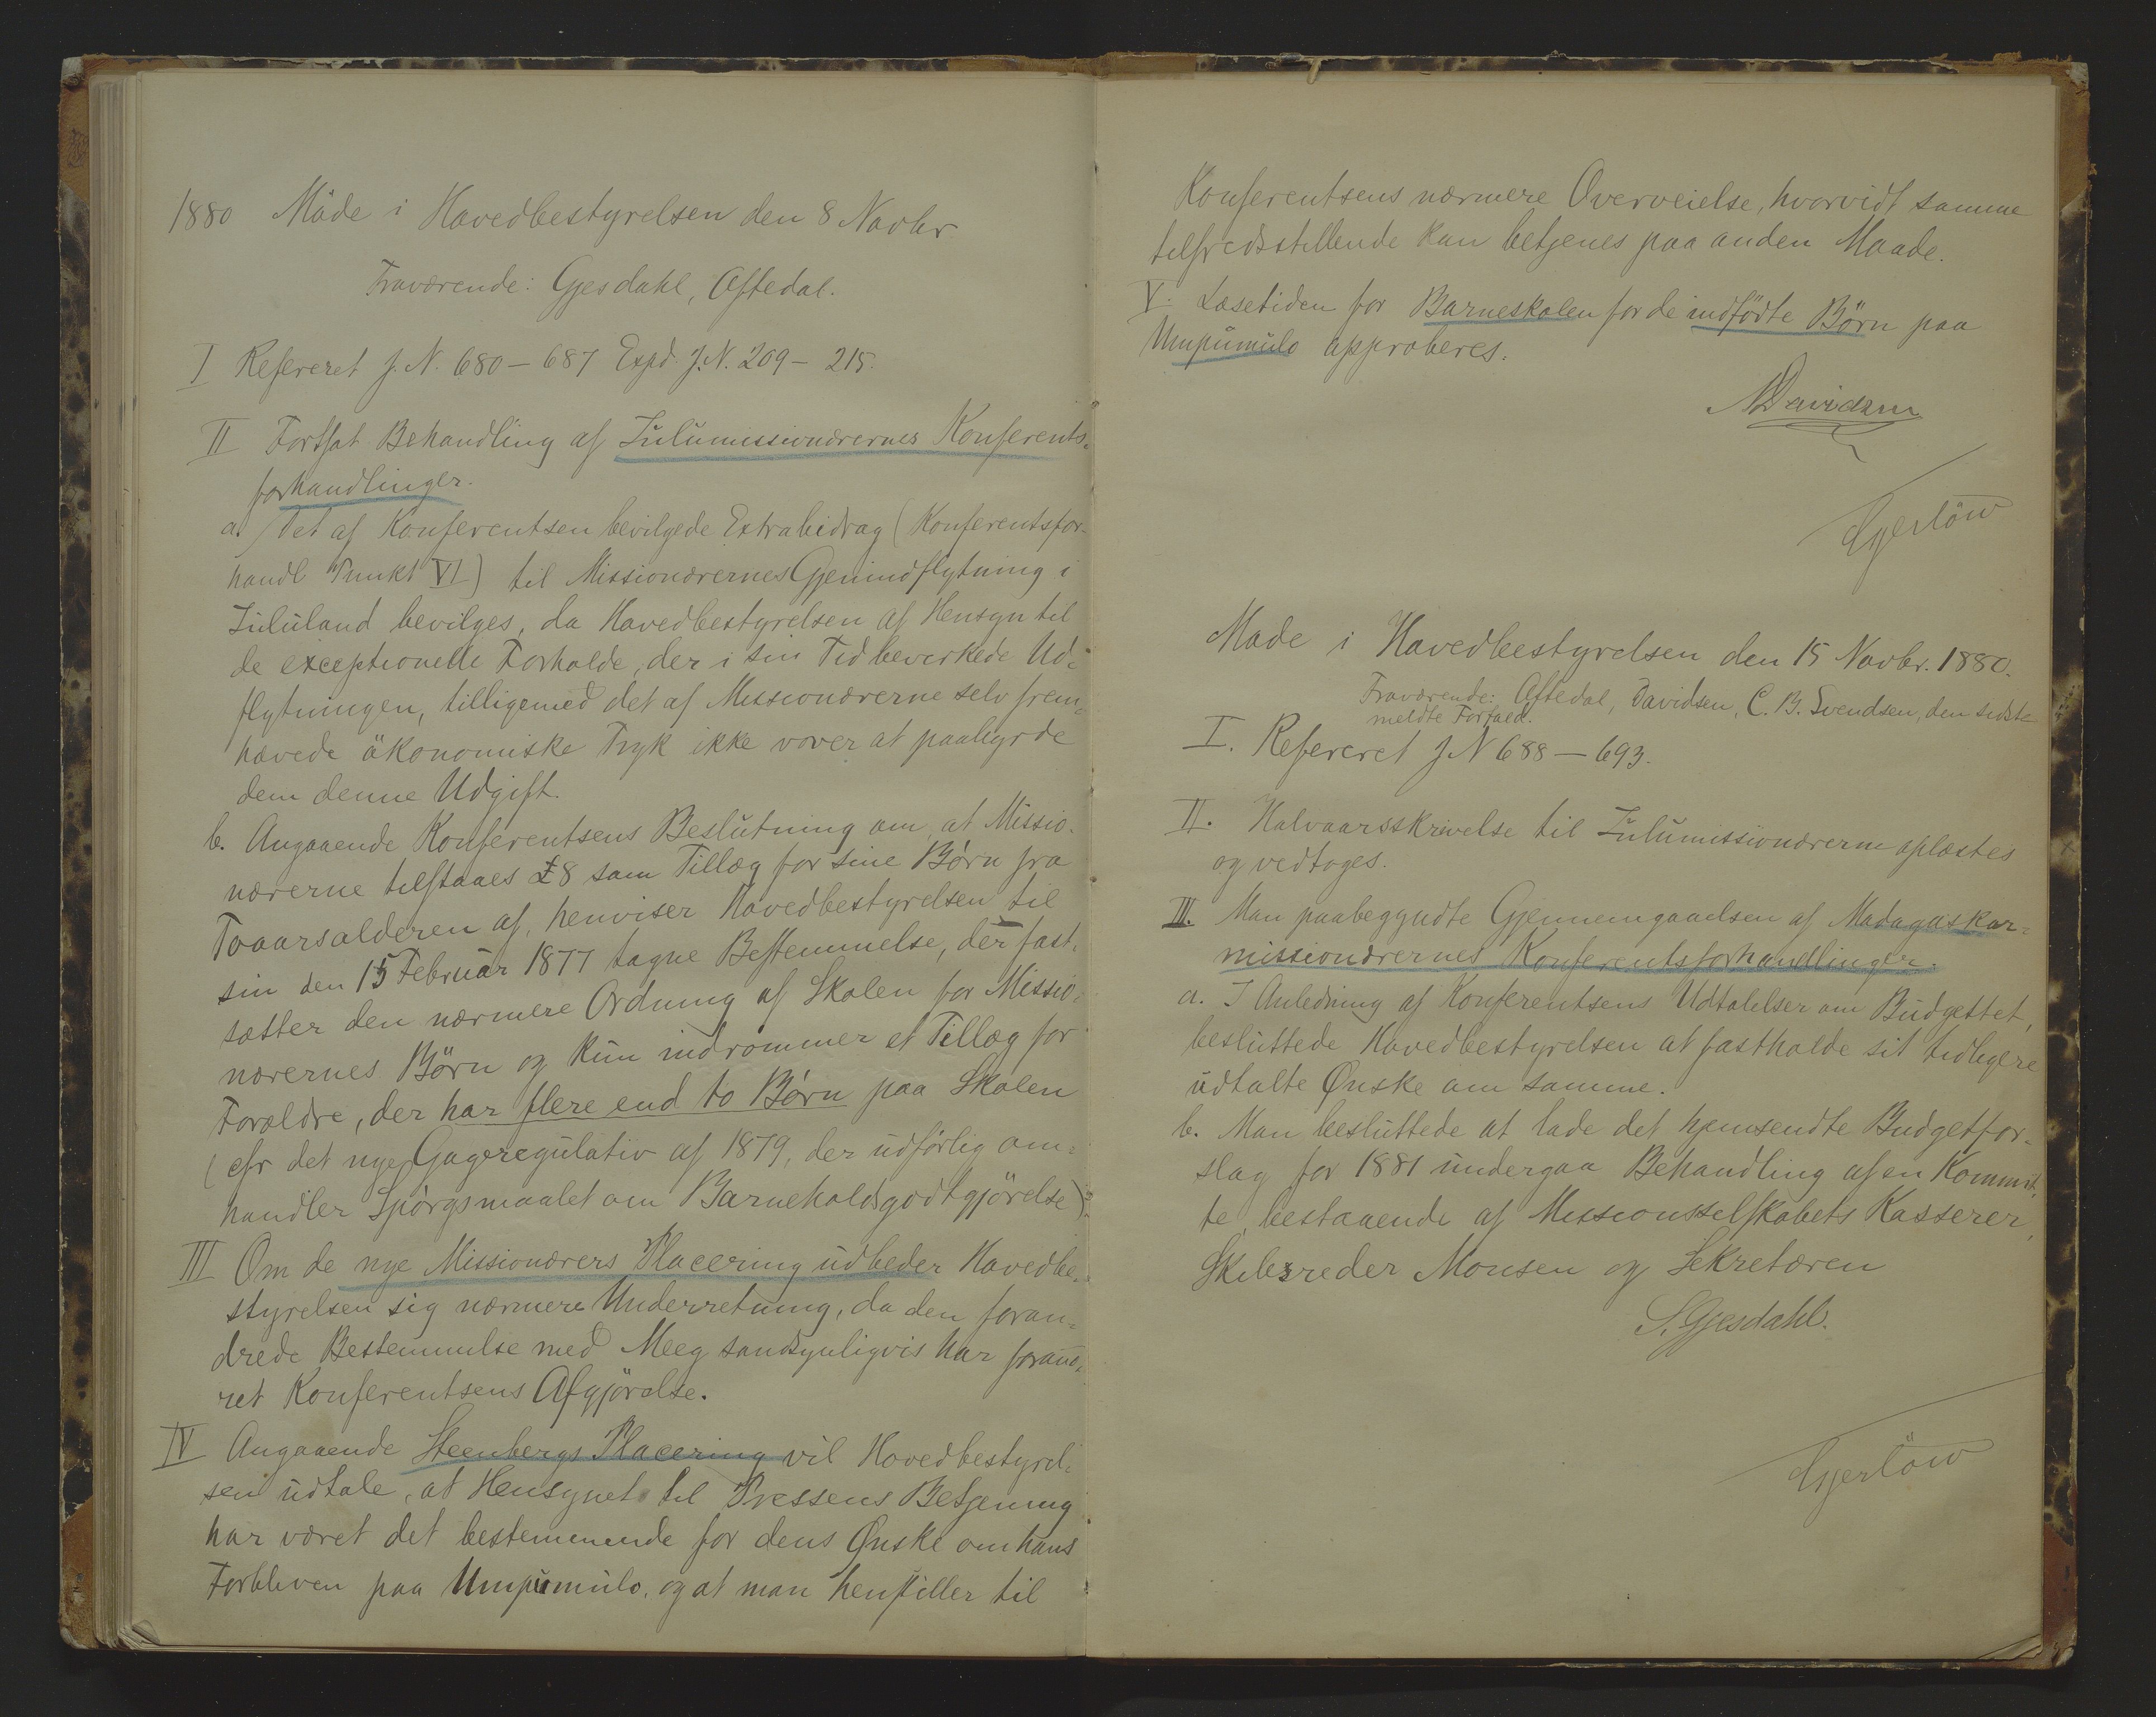 1880 Möde i Hovedbestyrelsen den 8 Novbr
Fraværende: Gjesdahl, Oftedal.
I Refereret J. N. 680 — 687 Expd. J. N. 209 — 215.
II Fortsat Behandling af Zulumissionærernes Konferents-
forhandlinger.
a. Det af Konferentsen bevilgede Extrabidrag (Konferentsfor-
handl Punkt VI) til Missionærernes Gjenindflytning i
Zululand bevilges, da Hovedbestyrelsen af Hensyn til
de exceptionelle Forholde, der i sin Tid bevirkede Ud-
flytningen, tilligemed det af Missionærerne selv frem-
hævede ökonomiske Tryk ikke vover at paabyrde
dem denne Udgift.
b. Angaaende Konferentsens Beslutning om, at Missio-
nærerne tilstaaes £8 som Tillæg for sine Börn fra
Toaarsalderen af, henviser Hovedbestyrelsen til
sin den 15 Februar 1877 tagne Bestemmelse, der fast-
sætter den nærmere Ordning af Skolen for Missio-
nærernes Börn og kun indrömmer et Tillæg for
Forældre, der har flere end to Börn paa Skolen
(cfr det nye Gageregulativ af 1879, der udförlig om-
handler Spörgsmaalet om Barneholdsgodtgjörelse).
III Om de nye Missionærers Placering udbeder Hovedbe-
styrelsen sig nærmere Underretning, da den foran-
drede Bestemmelse med Meeg sandsynligvis har forand-
ret Konferentsens Afgjörelse.
IV Angaaende Steenbergs Placering vil Hovedbestyrel-
sen udtale, at Hensynet til Pressens Betjening
har været det bestemmende for dens Ønske om hans
Forbliven paa Umpumulo, og at man henstiller til
Konferentsens nærmere Overveielse, hvorvidt samme
tilfredsstillende kan betjenes paa anden Maade.
V. Læsetiden for Barneskolen for de indfödte Börn paa
Umpumulo approberes.
N Davidsen
Gjerlöw
Möde i Hovedbestyrelsen den 15 Novbr. 1880.
Fraværende: Oftedal, Davidsen, C. B. Svendsen, den sidste
meldte Forfald.
I. Refereret J N 688 — 693.
II. Halvaarsskrivelse til Zulumissionærerne oplæstes
og vedtoges.
III. Man paabegyndte Gjennemgaaelsen af Madagaskar-
missionærernes Konferentsforhandlinger.
a. I Anledning af Konferentsens Udtalelser om Budgettet,
besluttede Hovedbestyrelsen at fastholde sit tidligere
udtalte Ønske om samme.
b. Man besluttede at lade det hjemsendte Budgetfor-
slag for 1881 undergaa Behandling af en Kommit-
te, bestaaende af Missionsselskabets Kasserer,
Skibsreder Monsen og Sekretæren
S. Gjesdahl.
Gjerlöw